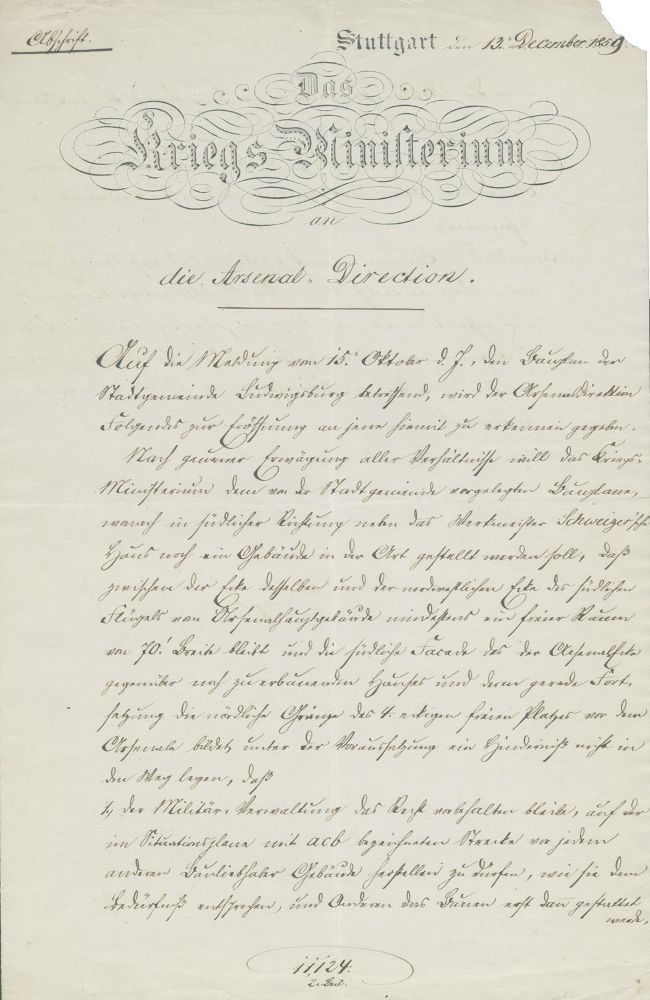 Abschrift.
Stuttgart den 13. December 1859
Das
Kriegs-Ministerium
an
die Arsenal-Direction.
Auf die Meldung vom 15. Oktober d. J., den Bauplan der
Stadtgemeinde Ludwigsburg betreffend, wird der Arsenaldirektion
Folgendes zur Eröffnung an jene hiemit zu erkennen gegeben.
Nach genauer Erwägung aller Verhältnisse will das Kriegs-
Ministerium dem von der Stadtgemeinde vorgelegten Bauplane,
wonach in südlicher Richtung neben das Werkmeister Schweizer'sche
Haus noch ein Gebäude in der Art gestellt werden soll, daß
zwischen der Ecke desselben und der nordwestlichen Ecke des südlichen
Flügels vom Arsenalhauptgebäude mindestens ein freier Raum
von 70.' Breite bleibt und die südliche Facade des der Arsenalecke
gegenüber noch zu erbauenden Hauses und deren gerade Fort-
setzung die nördliche Gränze des 4. eckigen freien Platzes vor dem
Arsenale bildet, unter der Voraussetzung ein Hinderniß nicht in
den Weg legen, daß
1., der Militär-Verwaltung das Recht vorbehalten bleibe, auf der
im Situationsplane mit acb bezeichneten Strecke vor jedem
anderen Bauliebhaber Gebäude herstellen zu dürfen, wie sie dem
Bedürfniß entsprechen, und Anderen das Bauen erst dan gestattet
werde,
11,124.